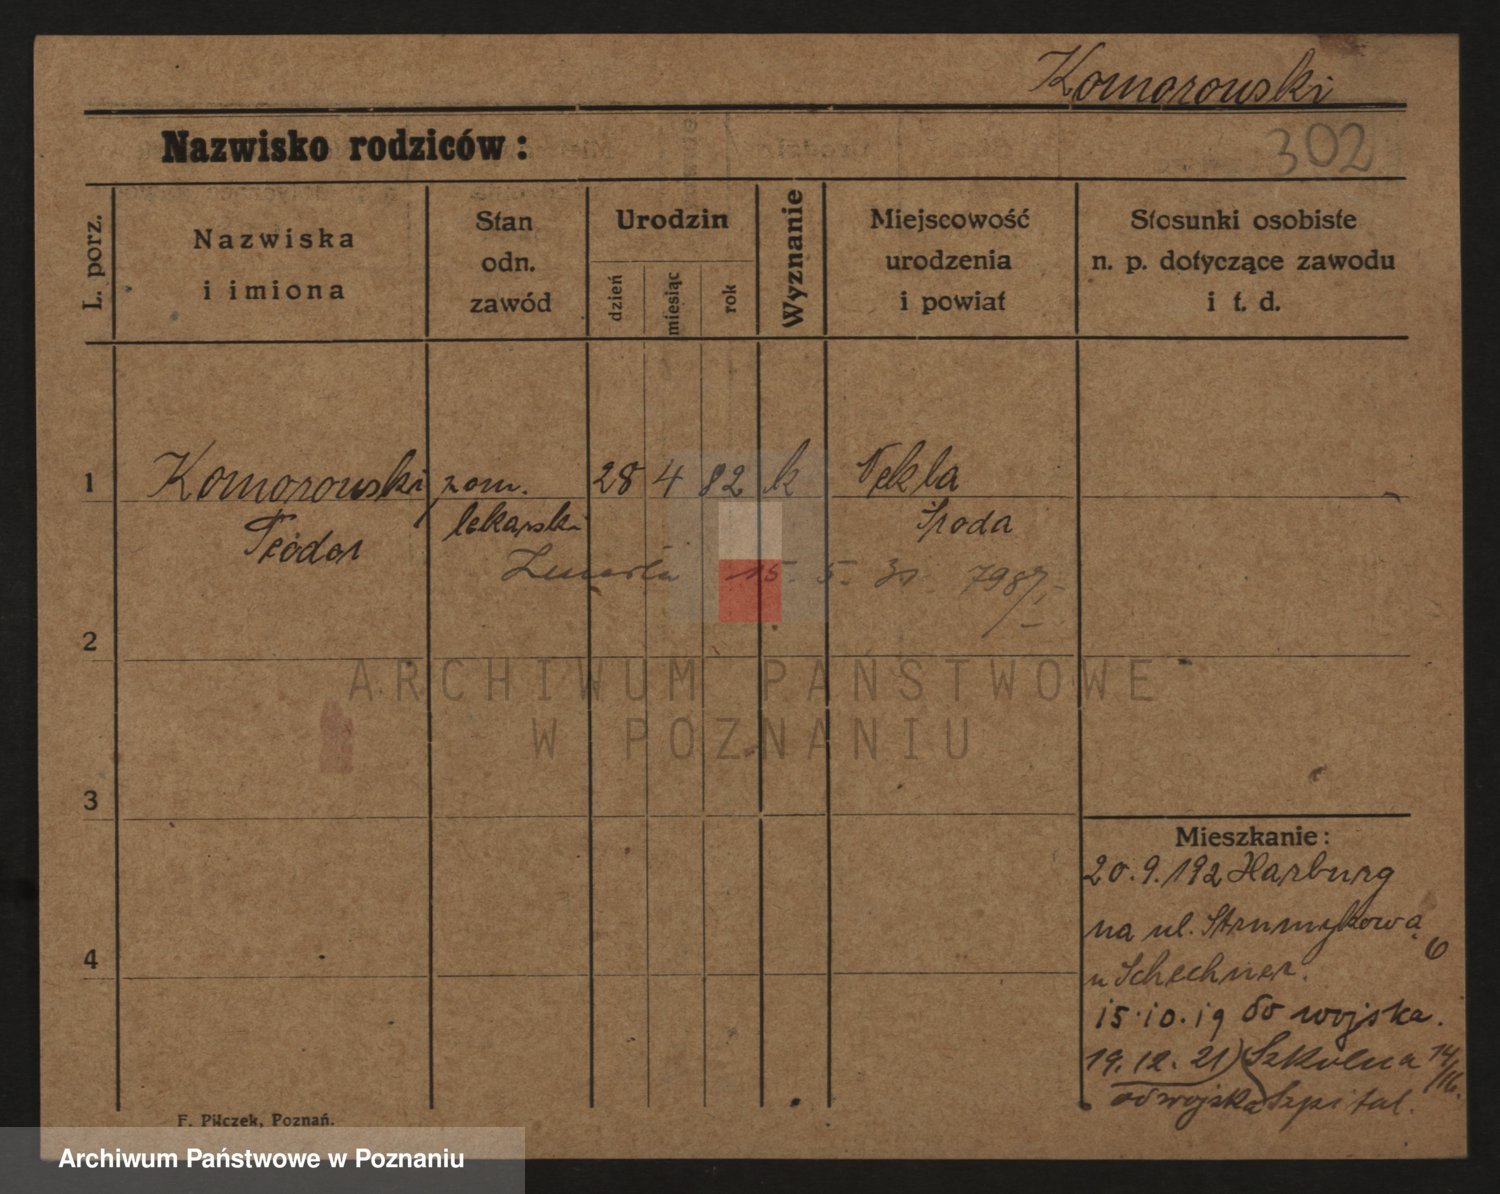 Komorowski
Nazwisko rodziców:
302
L. porz.
Nazwiska
i imiona
Stan
odn.
zawód
Urodzin
dzień
miesiąc
rok
Wyznanie
Miejscowość
urodzenia
i powiat
Stosunki osobiste
n. p. dotyczące zawodu
i t. d.
1 Komorowski pom. 28 4 82 k Nekla
Teodor lekarski Środa
15. 5. 31. 7987/I
2
ARCHIWUM PAŃSTWOWE
W POZNANIU
3
Mieszkanie:
20.9.192 Harburg
na ul. Strumykową 6
u Schechner.
4
15.10.19 do wojska.
19.12.21) Szkolna 14/16.
od wojska Szpital.
F. Pilczek, Poznań.
Archiwum Państwowe w Poznaniu